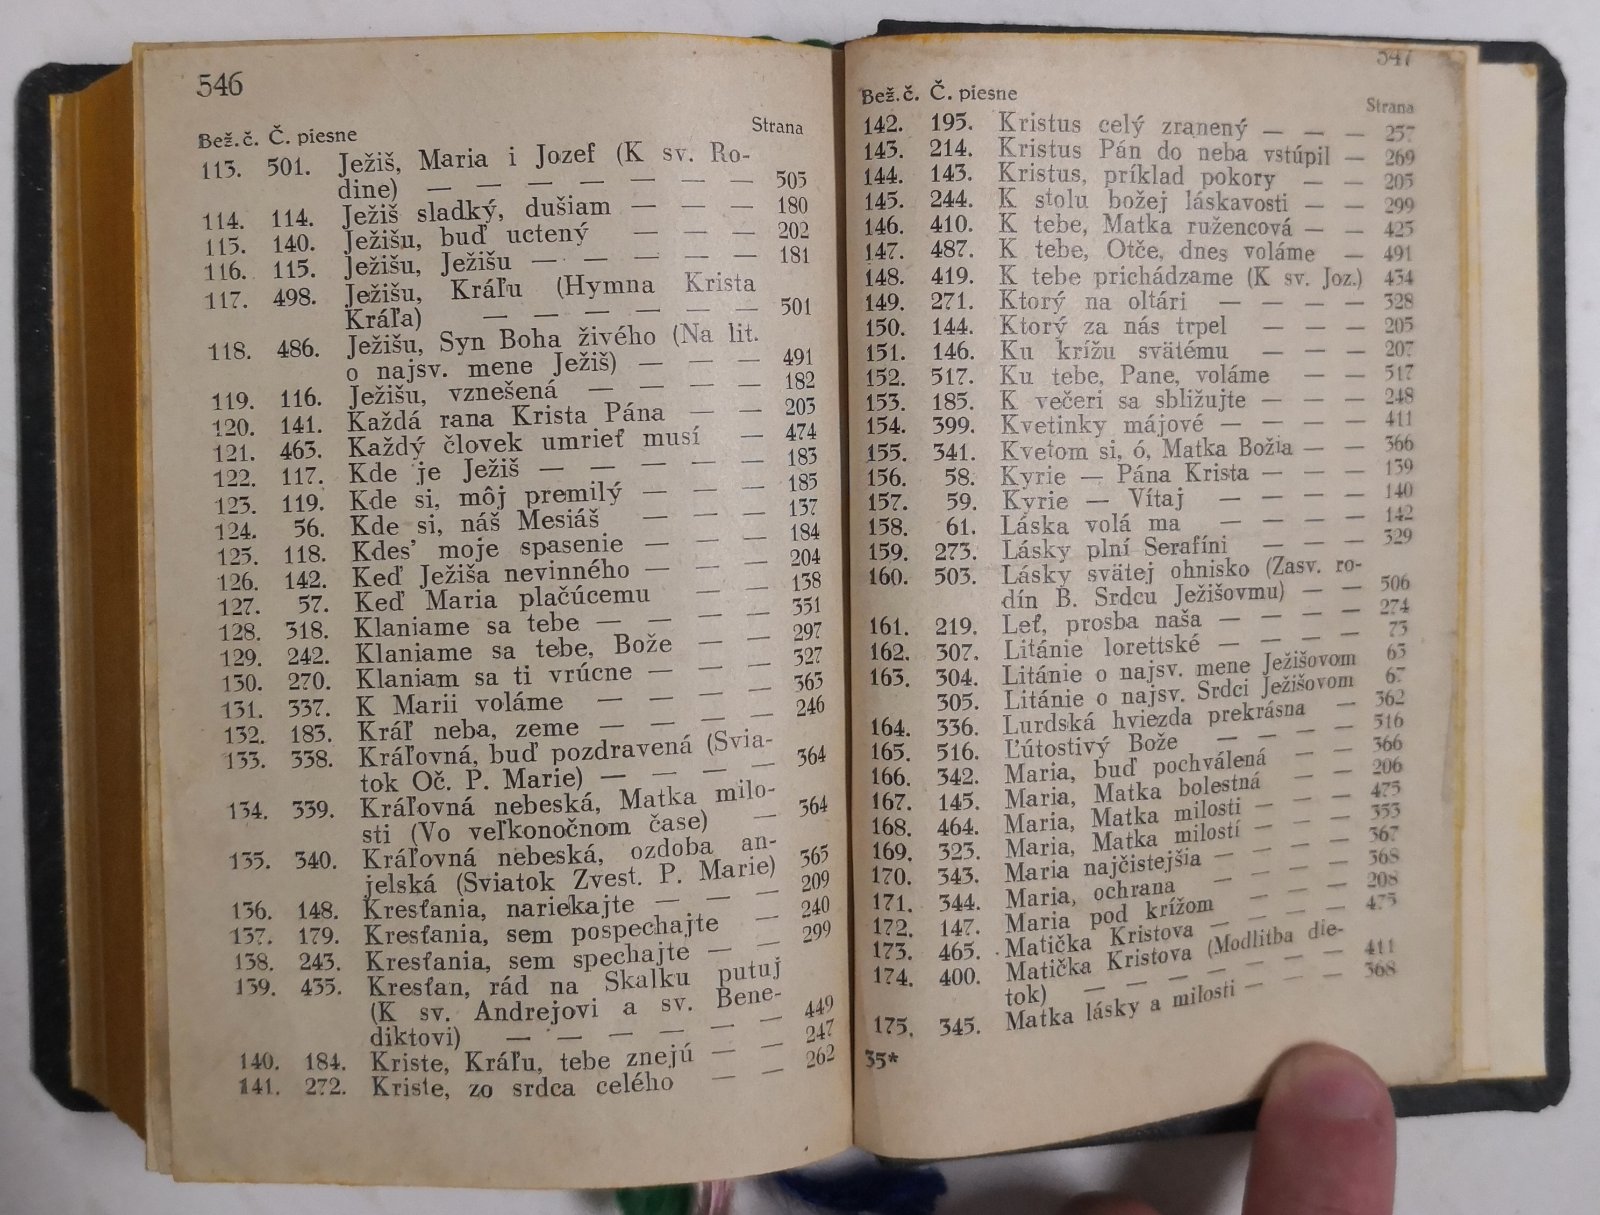 546
Bež. č. Č. piesne Strana
113. 501. Ježiš, Maria i Jozef (K sv. Ro-
dine) — — — — — — — 503
114. 114. Ježiš sladký, dušiam — — — 180
115. 140. Ježišu, buď uctený — — — 202
116. 115. Ježišu, Ježišu — — — — — 181
117. 498. Ježišu, Kráľu (Hymna Krista
Kráľa) — — — — — — 501
118. 486. Ježišu, Syn Boha živého (Na lit.
o najsv. mene Ježiš) — — — 491
119. 116. Ježišu, vznešená — — — — 182
120. 141. Každá rana Krista Pána — — 203
121. 463. Každý človek umrieť musí — 474
122. 117. Kde je Ježiš — — — — — 183
123. 119. Kde si, môj premilý — — — 185
124. 56. Kde si, náš Mesiáš — — — 137
125. 118. Kdes' moje spasenie — — — 184
126. 142. Keď Ježiša nevinného — — — 204
127. 57. Keď Maria plačúcemu — — 138
128. 318. Klaniame sa tebe — — — — 351
129. 242. Klaniame sa tebe, Bože — — 297
130. 270. Klaniam sa ti vrúcne — — — 327
131. 337. K Marii voláme — — — — 363
132. 183. Kráľ neba, zeme — — — — 246
133. 338. Kráľovná, buď pozdravená (Svia-
tok Oč. P. Marie) — — — — 364
134. 339. Kráľovná nebeská, Matka milo-
sti (Vo veľkonočnom čase) — 364
135. 340. Kráľovná nebeská, ozdoba an-
jelská (Sviatok Zvest. P. Marie) 365
136. 148. Kresťania, nariekajte — — — 209
137. 179. Kresťania, sem pospechajte — 240
138. 243. Kresťania, sem spechajte — — 299
139. 435. Kresťan, rád na Skalku putuj
(K sv. Andrejovi a sv. Bene-
diktovi) — — — — — — 449
140. 184. Kriste, Kráľu, tebe znejú — — 247
141. 272. Kriste, zo srdca celého — — 262
547
Bež. č. Č. piesne Strana
142. 195. Kristus celý zranený — — — 257
143. 214. Kristus Pán do neba vstúpil — 269
144. 143. Kristus, príklad pokory — — 205
145. 244. K stolu božej láskavosti — — 299
146. 410. K tebe, Matka ružencová — — 425
147. 487. K tebe, Otče, dnes voláme — 491
148. 419. K tebe prichádzame (K sv. Joz.) 434
149. 271. Ktorý na oltári — — — — 328
150. 144. Ktorý za nás trpel — — — 205
151. 146. Ku krížu svätému — — — 207
152. 517. Ku tebe, Pane, voláme — — 517
153. 185. K večeri sa sbližujte — — — 248
154. 399. Kvetinky májové — — — — 411
155. 341. Kvetom si, ó, Matka Božia — — 366
156. 58. Kyrie — Pána Krista — — — 139
157. 59. Kyrie — Vítaj — — — — 140
158. 61. Láska volá ma — — — — 142
159. 273. Lásky plní Serafíni — — — 329
160. 503. Lásky svätej ohnisko (Zasv. ro-
dín B. Srdcu Ježišovmu) — — 506
161. 219. Leť, prosba naša — — — — 274
162. 307. Litánie lorettské — — — — 73
163. 304. Litánie o najsv. mene Ježišovom 63
305. Litánie o najsv. Srdci Ježišovom 67
164. 336. Lurdská hviezda prekrásna — 362
165. 516. Ľútostivý Bože — — — — 516
166. 342. Maria, buď pochválená — — 366
167. 145. Maria, Matka bolestná — — 206
168. 464. Maria, Matka milosti — — — 475
169. 323. Maria, Matka milostí — — — 353
170. 343. Maria najčistejšia — — — — 367
171. 344. Maria, ochrana — — — — 368
172. 147. Maria pod krížom — — — 208
173. 465. Matička Kristova — — — — 475
174. 400. Matička Kristova (Modlitba die-
tok) — — — — — — — 411
175. 345. Matka lásky a milosti — — — 368
35*